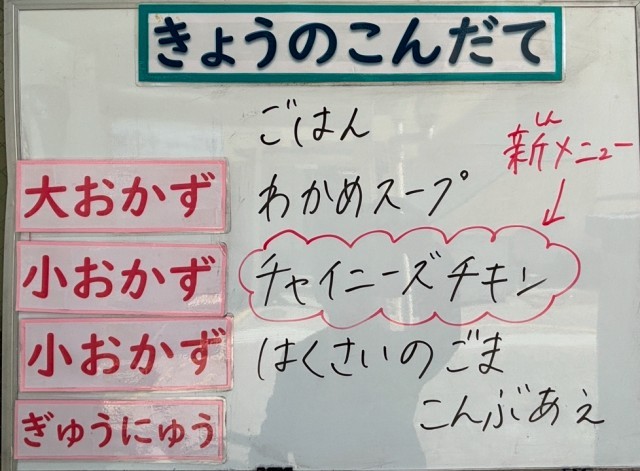 きょうのこんだて
ごはん
しん
新メニュー
大おかず わかめスープ
小おかず チャイニーズチキン
小おかず はくさいのごま
こんぶあえ
ぎゅうにゅう